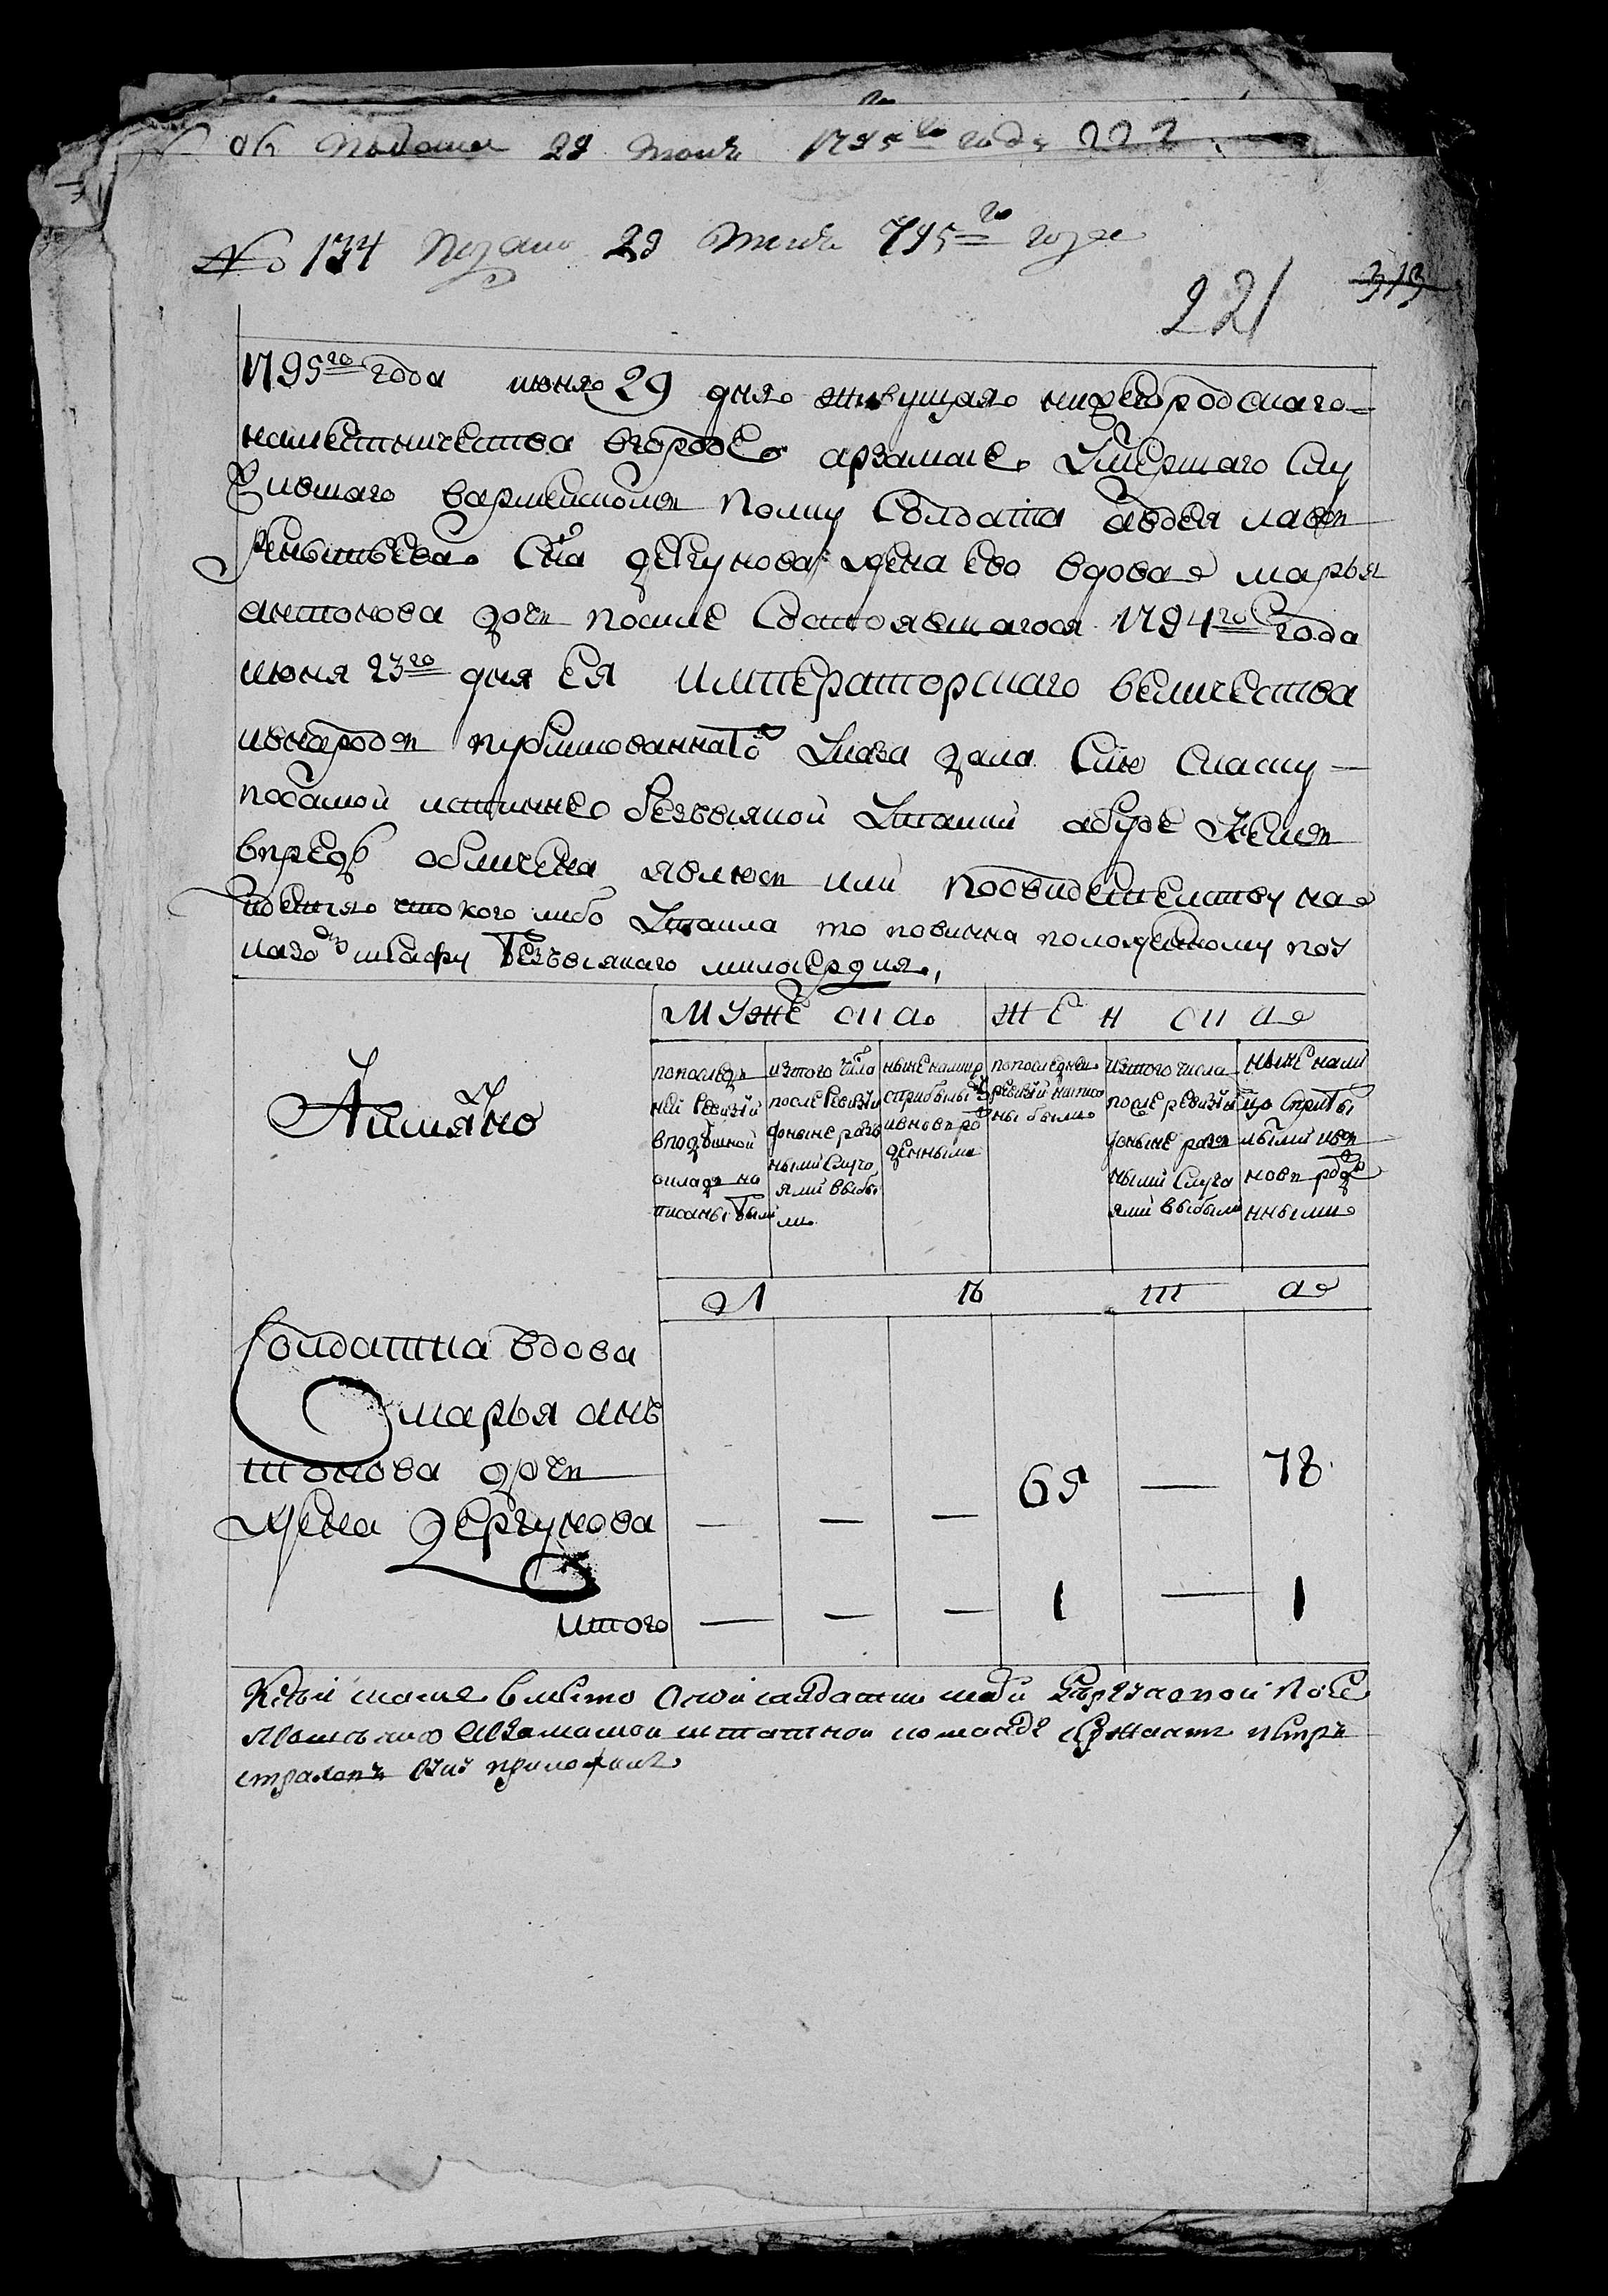 Подана 29 июня 1795го года 222
№ 134 Подано 29 июня 795го года
221 313
1795го года июня 29 дня живущая нижегородскаго
наместничества вгороде арзамасе Умершаго Слу
жившаго вармейскомъ полку Солдата авдея лавъ
реньтьева Сна дечунова жена ево вдова марья
антонова дочь после Состоявшагося 1794го года
июня 23го дня ЕЯ императорскаго величества
ивнародъ публикованнаго Указа дала Сию Скаску
посамой истинне безъвсякой Утайки абуде Кемъ
впредь обличена явлюсь или посвидетелству на
йдется что кого либо Утаила то повинна положенному поу
казомъ штрафу безъвсякаго милосердия,
Мужеска женска
Аимянно
попослѣд
ней ревизии
вподушной
окладъ на
писаны были
изтого числа
после ревизии
доныне разъ
ными случа
ями выбы
ли
ныне налицо
сприбылыми
ивновь ро
жденными
попоследней
ревизии написа
ны были
изтого числа
после ревизии
доныне разъ
ными случа
ями выбыли
ныне нали
цо сприбы
лыми ивъ
новь рожде
нными
Л ѣ т а
Солдатка вдова
марья анъ
тонова дочь
жена дергунова — — — 65 — 78
итого — — — 1 — 1
Ксей скаске вместо оной салдатки
арзамаской штатной команды сержант петръ
страховъ руку приложилъ